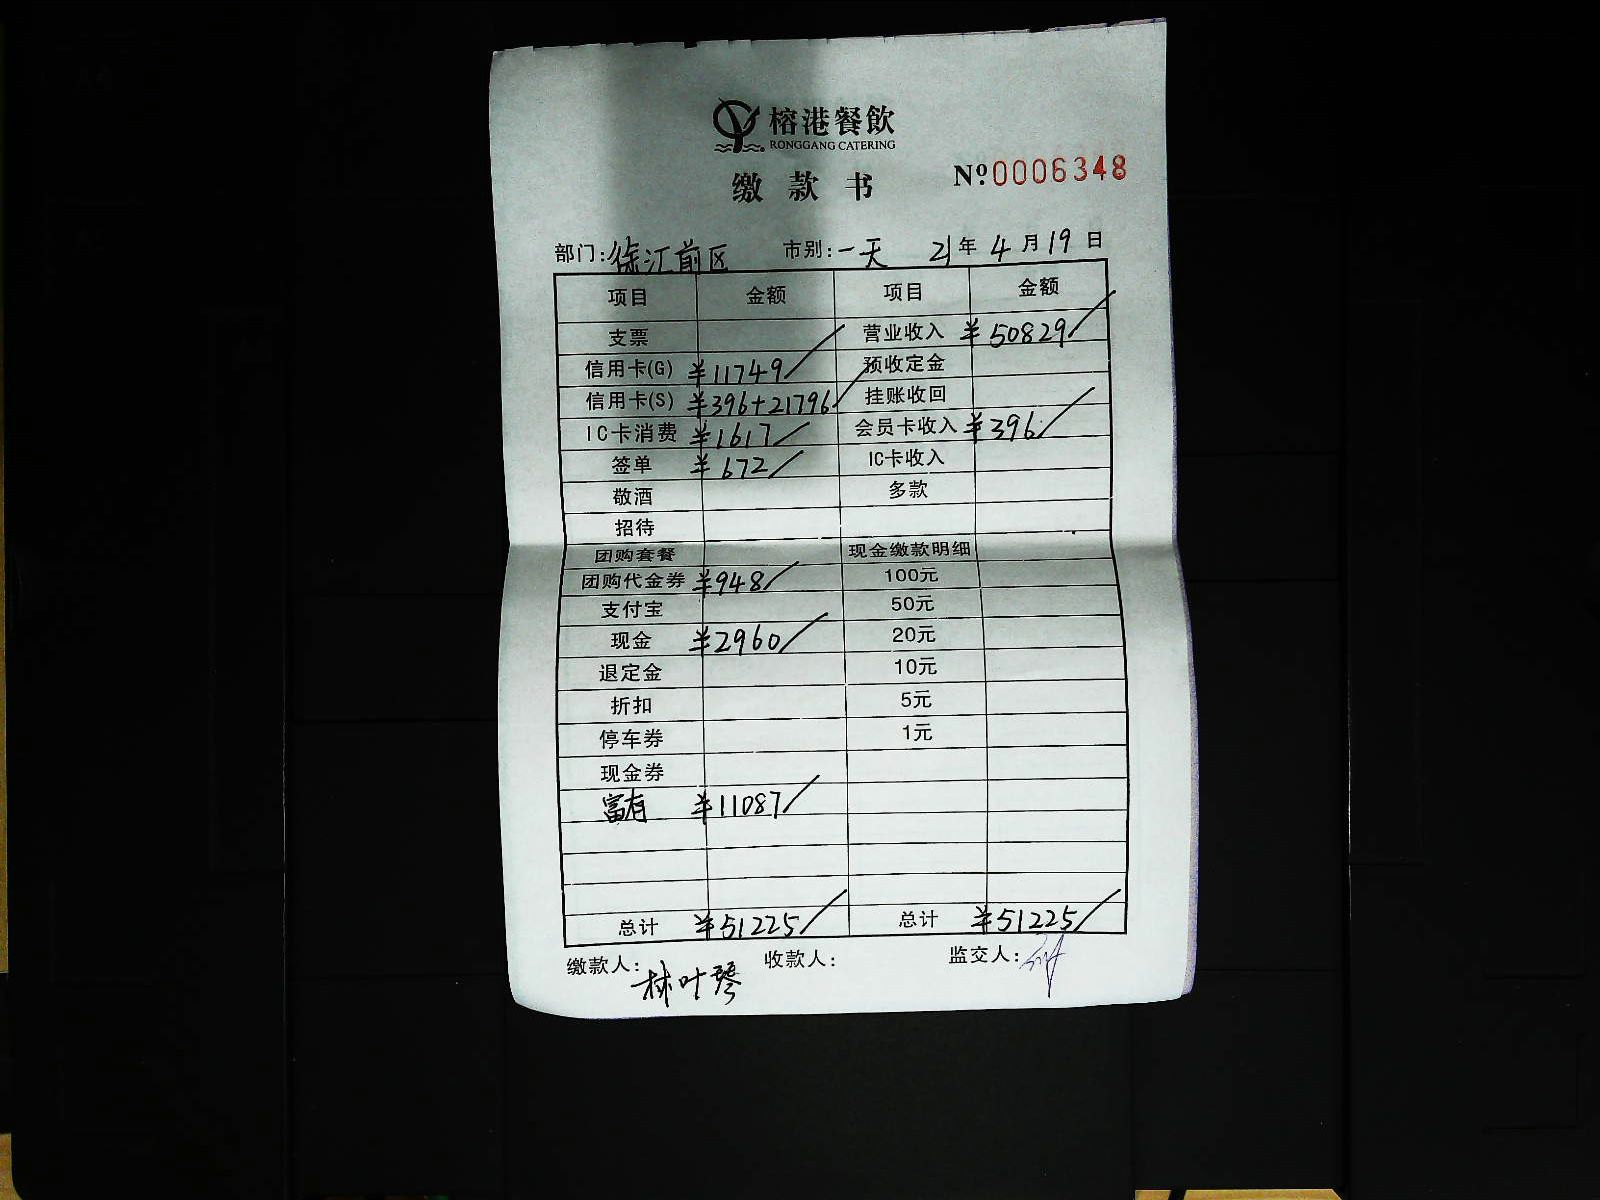 榕港餐飲
RONGGANG CATERING
缴款书 №0006348
部门:徐江前区 市别:一天 21年4月19日
项目 金额 项目 金额
支票 营业收入 ¥50829
信用卡(G) ¥11749 预收定金
信用卡(S) ¥396+21796 挂账收回
IC卡消费 ¥1617 会员卡收入 ¥396
签单 ¥672 IC卡收入
敬酒 多款
招待
团购套餐 现金缴款明细
团购代金券 ¥948 100元
支付宝 50元
现金 ¥2960 20元
退定金 10元
折扣 5元
停车券 1元
现金券
富有 ¥11087
总计 ¥51225 总计 ¥51225
缴款人:林叶琴 收款人: 监交人: